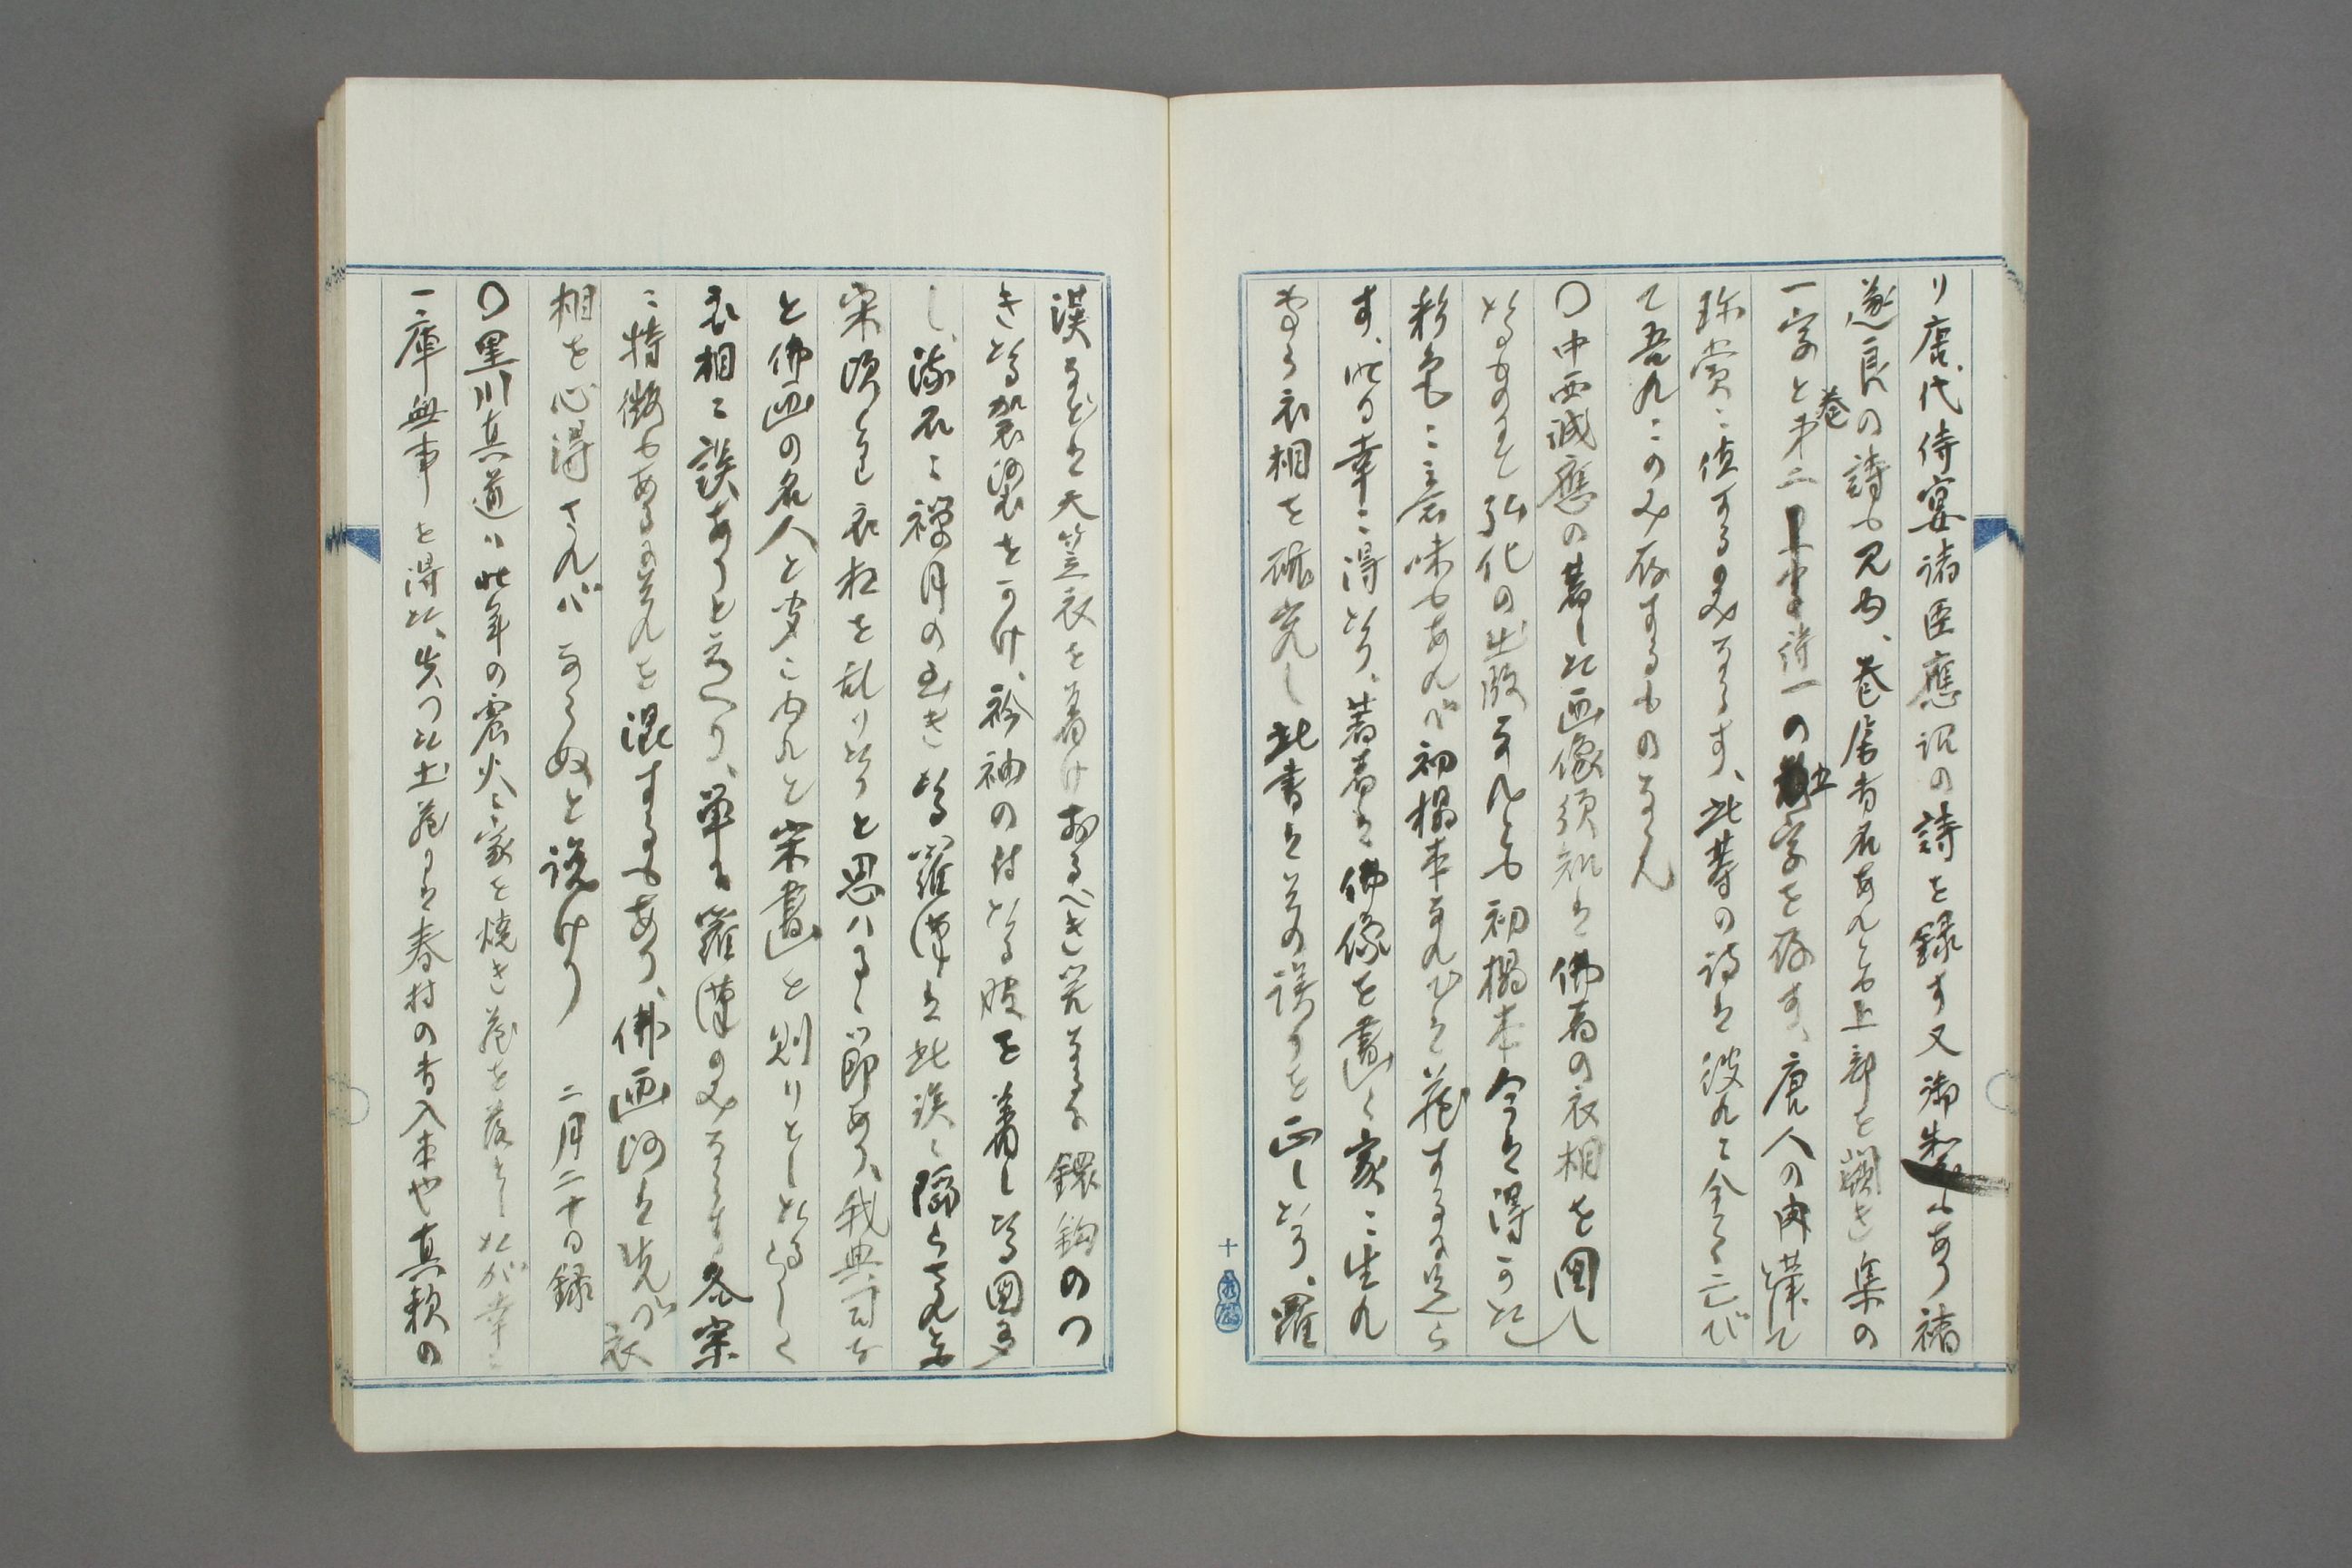 り唐代侍宴諸臣應詔の詩を録す又御製もあり褚
遂良の詩も見ゆ、巻居首名あれとも上部を闕き集の
一字と巻第二 詩一の五字を存す、唐人の肉蹟として
珍賞に値するのみならす、此等の詩は彼れに全く亡び
て吾れにのみ存するものならん
〇中西誠應の著した画像須知は佛者の衣相を図し
たるものにて弘化の出版なれとも初摺本今は得かたし
彩色に意味もあれバ初摺本ならでは蔵するに足ら
す、此る幸に得たり、著者は佛像を畫く家に生れ
衣相を研究し此書は其の誤りを正したり、羅
漢などは天竺衣を着けおるべき筈なるに鐶鈎のつ
きたる袈裟をつけ、衫袖の付たる服を着したる図多
し、流石に禅月の画きたる羅漢は此誤に陥らされとも
宋頃より衣相を乱りたりと思ハるゝ節あり、我典司な
と佛画の名人と史にあれと宋畫を則りとしたるらしく
衣相に誤ありと云へり、単に羅漢のみならす各宗
に特徴もあるに其れを混するもあり、佛画師は先づ衣
相を心得されバならぬと説けり　二月二十日録
〇黒川真道ハ此年の震火に家を焼き蔵を落としたが幸に
一庫無事を得た、失つた土蔵には春村の書入本や真頼の
十